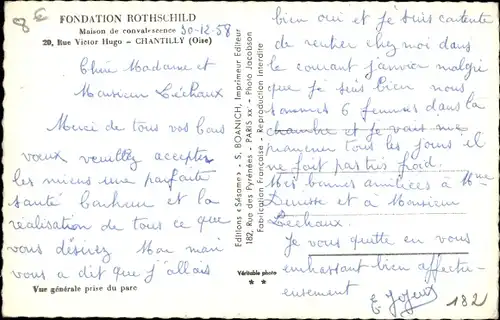 8 €
FONDATION ROTHSCHILD
Maison de convalescence 30-12-58
20, Rue Victor Hugo - CHANTILLY (Oise)
Chère Madame et
Monsieur Léchaux
Merci de tous vos bons
voeux veuillez accepter
les miens une parfaite
santé bonheur et la
réalisation de tous ce que
vous désirez Mon mari
vous a dit que j'allais
Vue générale prise du parc
Editions «Sésame» - S. BOANICH, Imprimeur Editeur
182, Rue des Pyrénées - PARIS XX° - Photo Jacobson
Fabrication Française - Reproduction Interdite
Véritable photo
bien oui et je suis contente
de rentrer chez moi dans
le courant janvier malgré
que je suis bien nous
sommes 6 femmes dans la
chambre et je vais me
promener tous les jours il
ne fait pas très froid.
Mes bonnes amitiées à Mme
et a Monsieur
Lechaux.
Je vous quitte en vous
embrassant bien affectu-
eusement
182